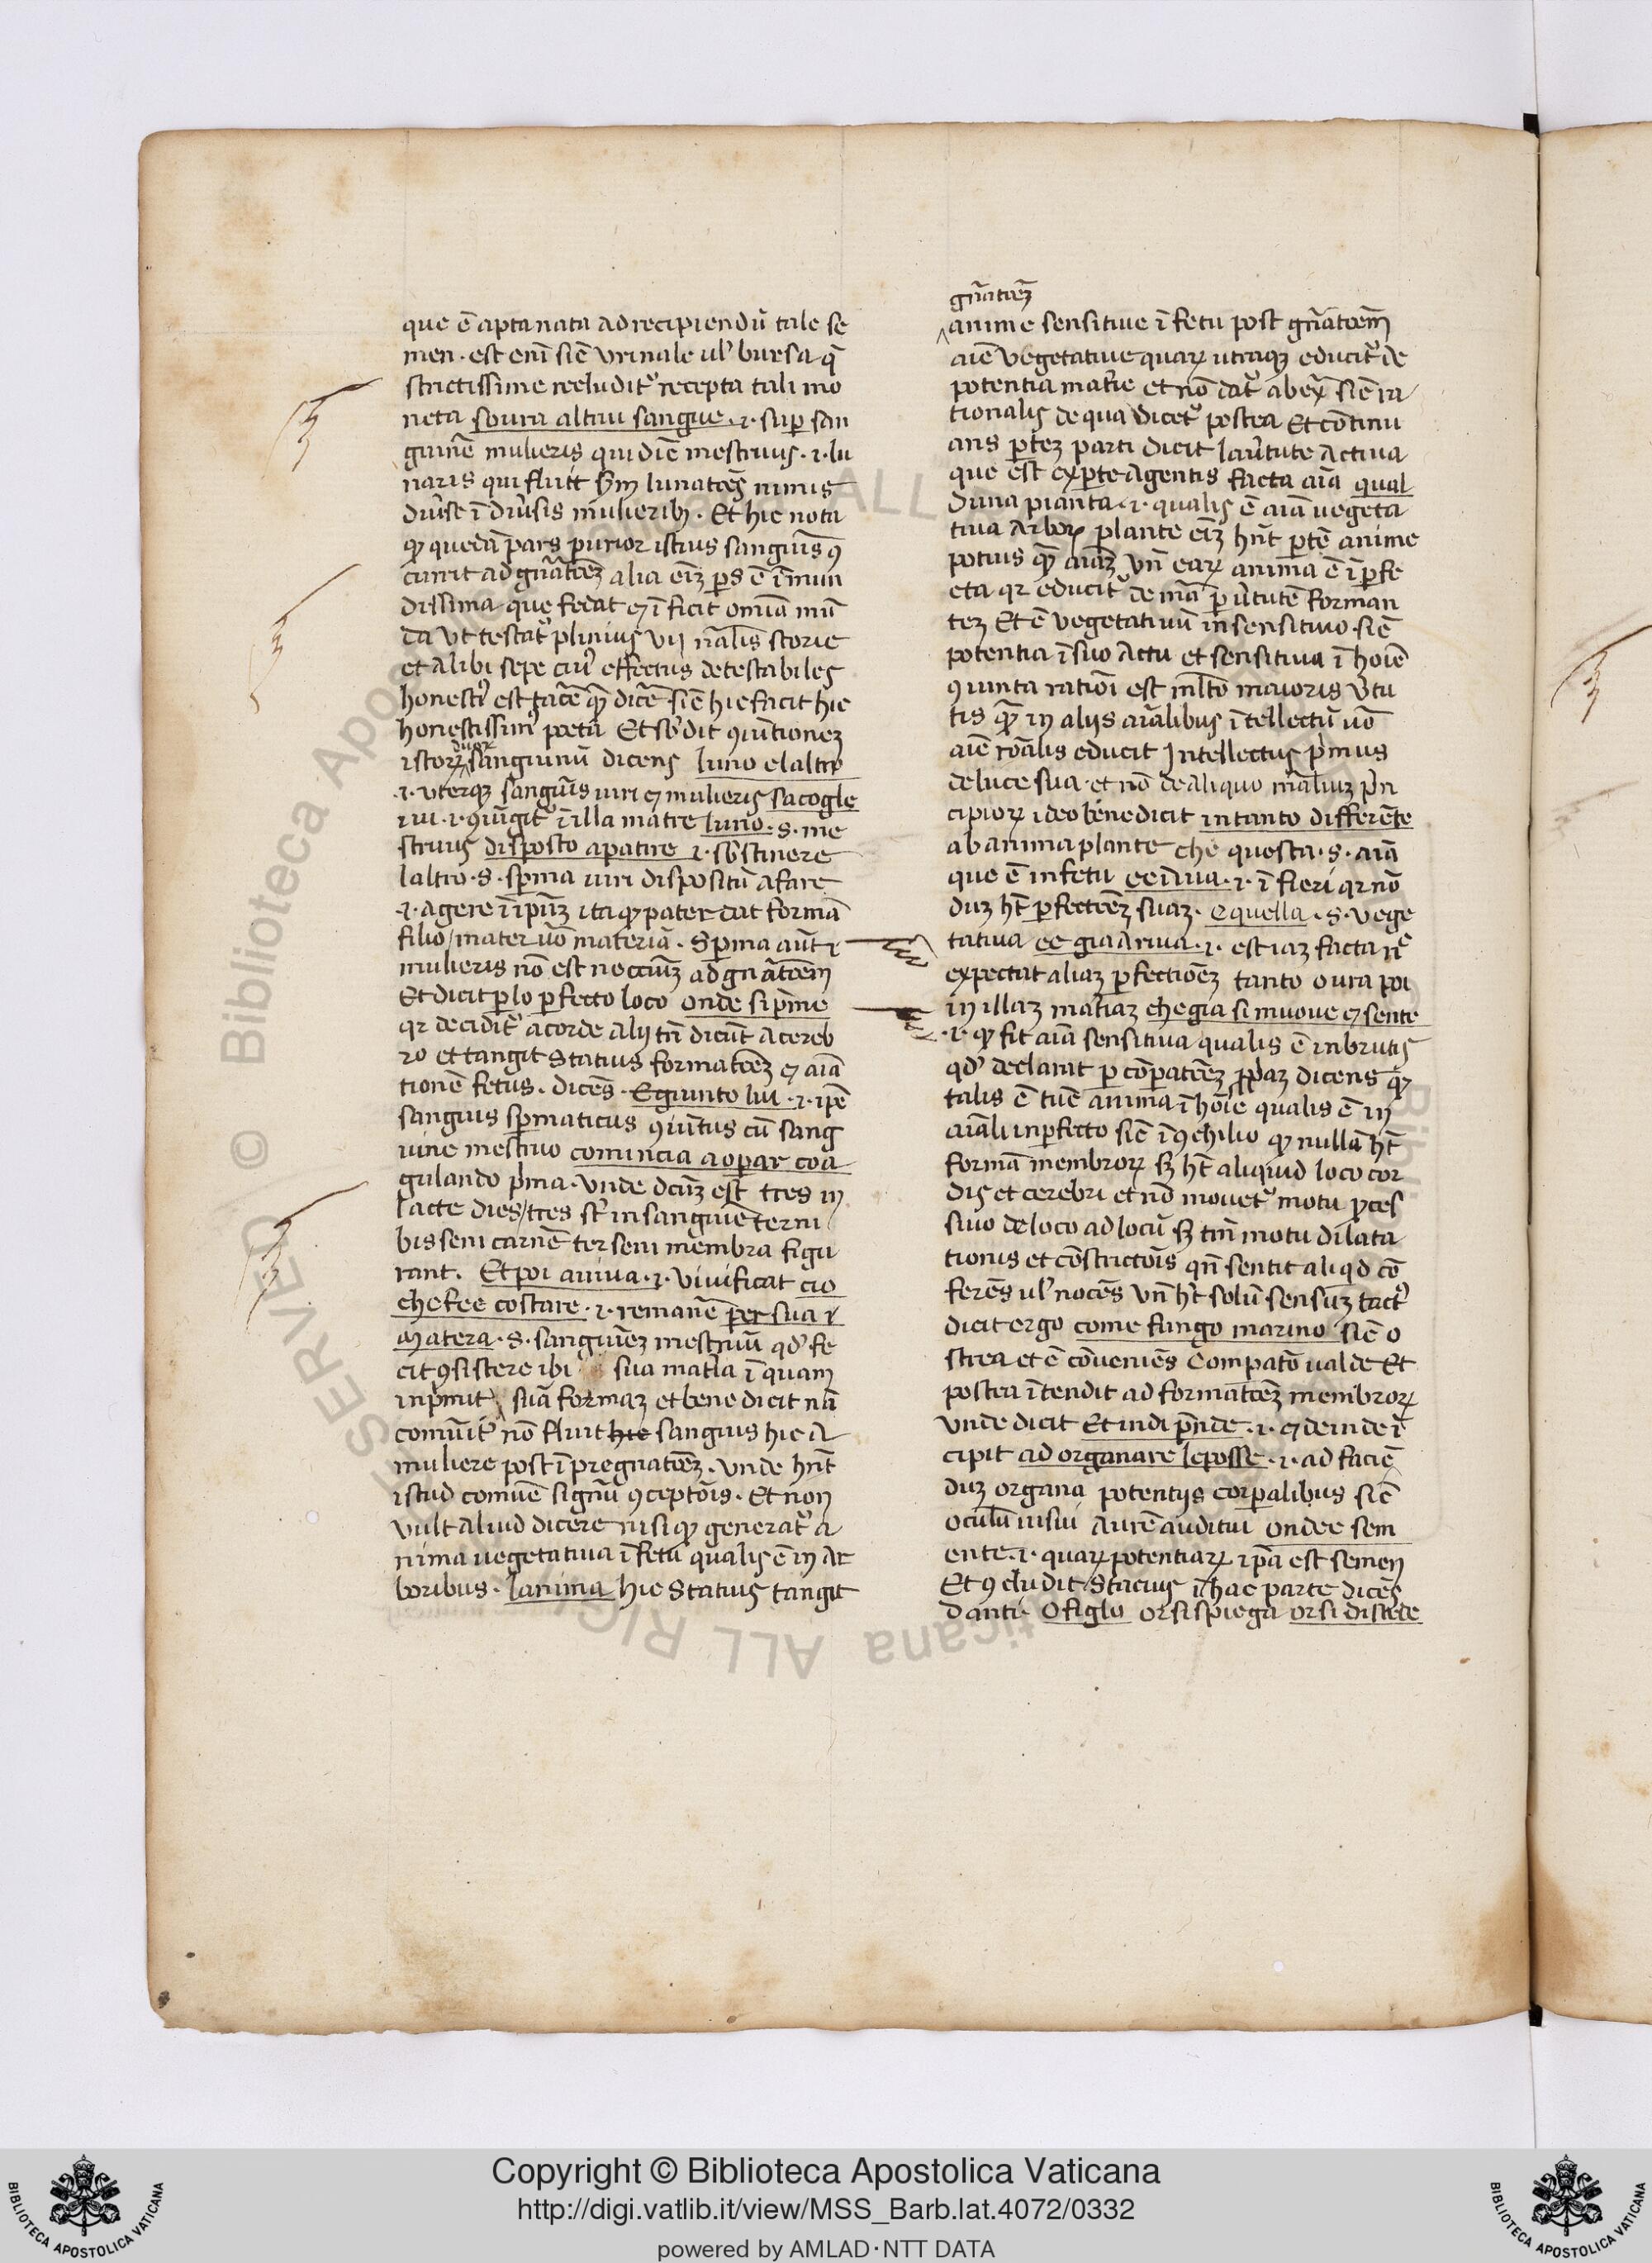 que ē apta nata ad recipiendū tale se
men · est eni᷒ sic̄ vrinale ul' bursa q̄
strictissime recludit᷒ recepta tali mo
neta soura altrui sangue · i · sup san
guinē mulieris qui dic̄ mestruus · i · lu
naris qui fluit sm lunatōes nimis
diu͛se ī diu͛sis mulierib; · Et hic nota
q quedā pars purior istius sanguīs ꝯ
currit ad gn̄atōez alia eīz ps ē īmun
dissima que fedat ⁊ īficit omīa mū
da vt testat᷒ plinius vij n̄alis storie
et alibi sepe cui᷒ effectus detestabiles
honesti᷒ est tacē q̄ dicē sic̄ hic facit hic
honestissim᷒ poeta Et sb'dit ꝯiūtionez
istoꝝ duoꝝ sanguinū dicens luno elaltro
· i · vterqꝫ sanguīs uiri ⁊ mulieris sacogle
iui · i · ꝯiūgit᷒ ī illa matre luno · s · me
struus disposto apatire · i · sb'stinere
laltro · s · sperma uiri dispositū afare
· i · agere ī ipūz ita q pater dat formā
filio / mater uō materiā · Sperma aūt
mulieris nō est neccīuz ad gn̄atōem
Et dicit p lo pfecto loco onde si pme
qr decidit᷒ a corde alij tn̄ dicūt a cereb
ro et tangit Statius formatōez ⁊ aīa
tionē fetus · dicēs · Egiunto lui · i · ipē
sanguis spmaticus ꝯiūtus cū sang
uine mestruo comincia aoprar coa
gulando pma · vnde dcūz est tres in
lacte dies / tres st̄ in sanguīe terni
bis seni carnē ter seni membra figu
rant · Et poi auiua · i · viuificat cio
che fee costare · i · remanē per sua
matera · s · sanguinez mestruū qd' fe
cit ꝯsistere ibi sua matia ī quam
inpmit suā formaz et bene dicit nā
comūit᷒ nō fluit hic sanguis hic a
muliere post īpregnatōez · vnde hn̄t
istud comūe signū ꝯceptōis · Et non
vult aliud dicere nisi q generat᷒ a
nima uegetatiua ī fetu qualis ē in ar
boribus · lanima hic Statius tangit
gn̄atōez
anime sensitiue ī fetu post gn̄atōem
aīe vegetatiue quaꝝ utraqꝫ educit᷒ de
potentia matie et nō dat᷒ ab ex͛ sic̄ ra
tionalis de qua dicet᷒ postea Et cōtinu
ans ptez parti dicit lau͛tute actiua
que est ex pte agentis facta aīa qual
duna pianta · i · qualis ē aīa uegeta
tiua arboꝝ plante eīz hn̄t ptē anime
potius q̄ aīaz vn̄ eaꝝ anima ē īpfe
cta qr educit᷒ de mā p uͥtutē forman
tez Et ē vegetatiuū in sensitiuo sic̄
potentia ī suo actu et sensitiua ī hoīe
ꝯiunta rationi est mlto maioris vͥtu
tis q̄ in alijs aīalibus ītellectū uō
aīe rōalis educit Intellectus pmus
de luce sua · et nō de aliquo māliuz pn
cipioꝝ ideo bene dicit in tanto differēte
ab anima plante che questa · s · aīa
que ē in fetu ee inuia · i · ī fieri qr nō
duz ht̄ pfectōez suaz · e quella · s · vege
tatiua ee gia ariua · i · est iaz facta
expectat aliaz pfectionez tanto oura poi
in illaz matiaz che gia si muoue ⁊ sente
· i · q fit aīa sensitiua qualis ē in brutis
qd' declarat p cōpatōez ꝓpaz dicens q
talis ē tūc anima ī hoīe qualis ē in
aīali inpfecto sic̄ ī ꝯchilio q nullā ht̄
formā membroꝝ sꝫ ht̄ aliquid loco cor
dis et cerebri et nō mouet᷒ motu ꝓces
siuo de loco ad locū sꝫ tm̄ motu dilata
tionis et cōstrictōis qn̄ sentit aliqd cō
ferēs ul' nocēs vn̄ ht̄ solū sensuz tact᷒
dicit ergo come fungo marino sic̄ o
strea et ē cōueniēs compatō ualde Et
postea ītendit ad formatōez membroꝝ
vnde dicit Et indi pn̄de · i · ⁊ deinde ī
cipit ad organare le posse · i · ad faciē
duz organa potentijs corpalibus sic̄
oculū uisui aurē auditui ondee sem
ente · i · quaꝝ potentiaꝝ ipa est semen
Et ꝯcludit Stacius ī hac parte dicēs
danti · O figlo or si spiega or si distēde
Copyright © Biblioteca Apostolica Vaticana
http://digi.vatlib.it/view/MSS_Barb.lat.4072/0332
powered by AMLAD·NTT DATA